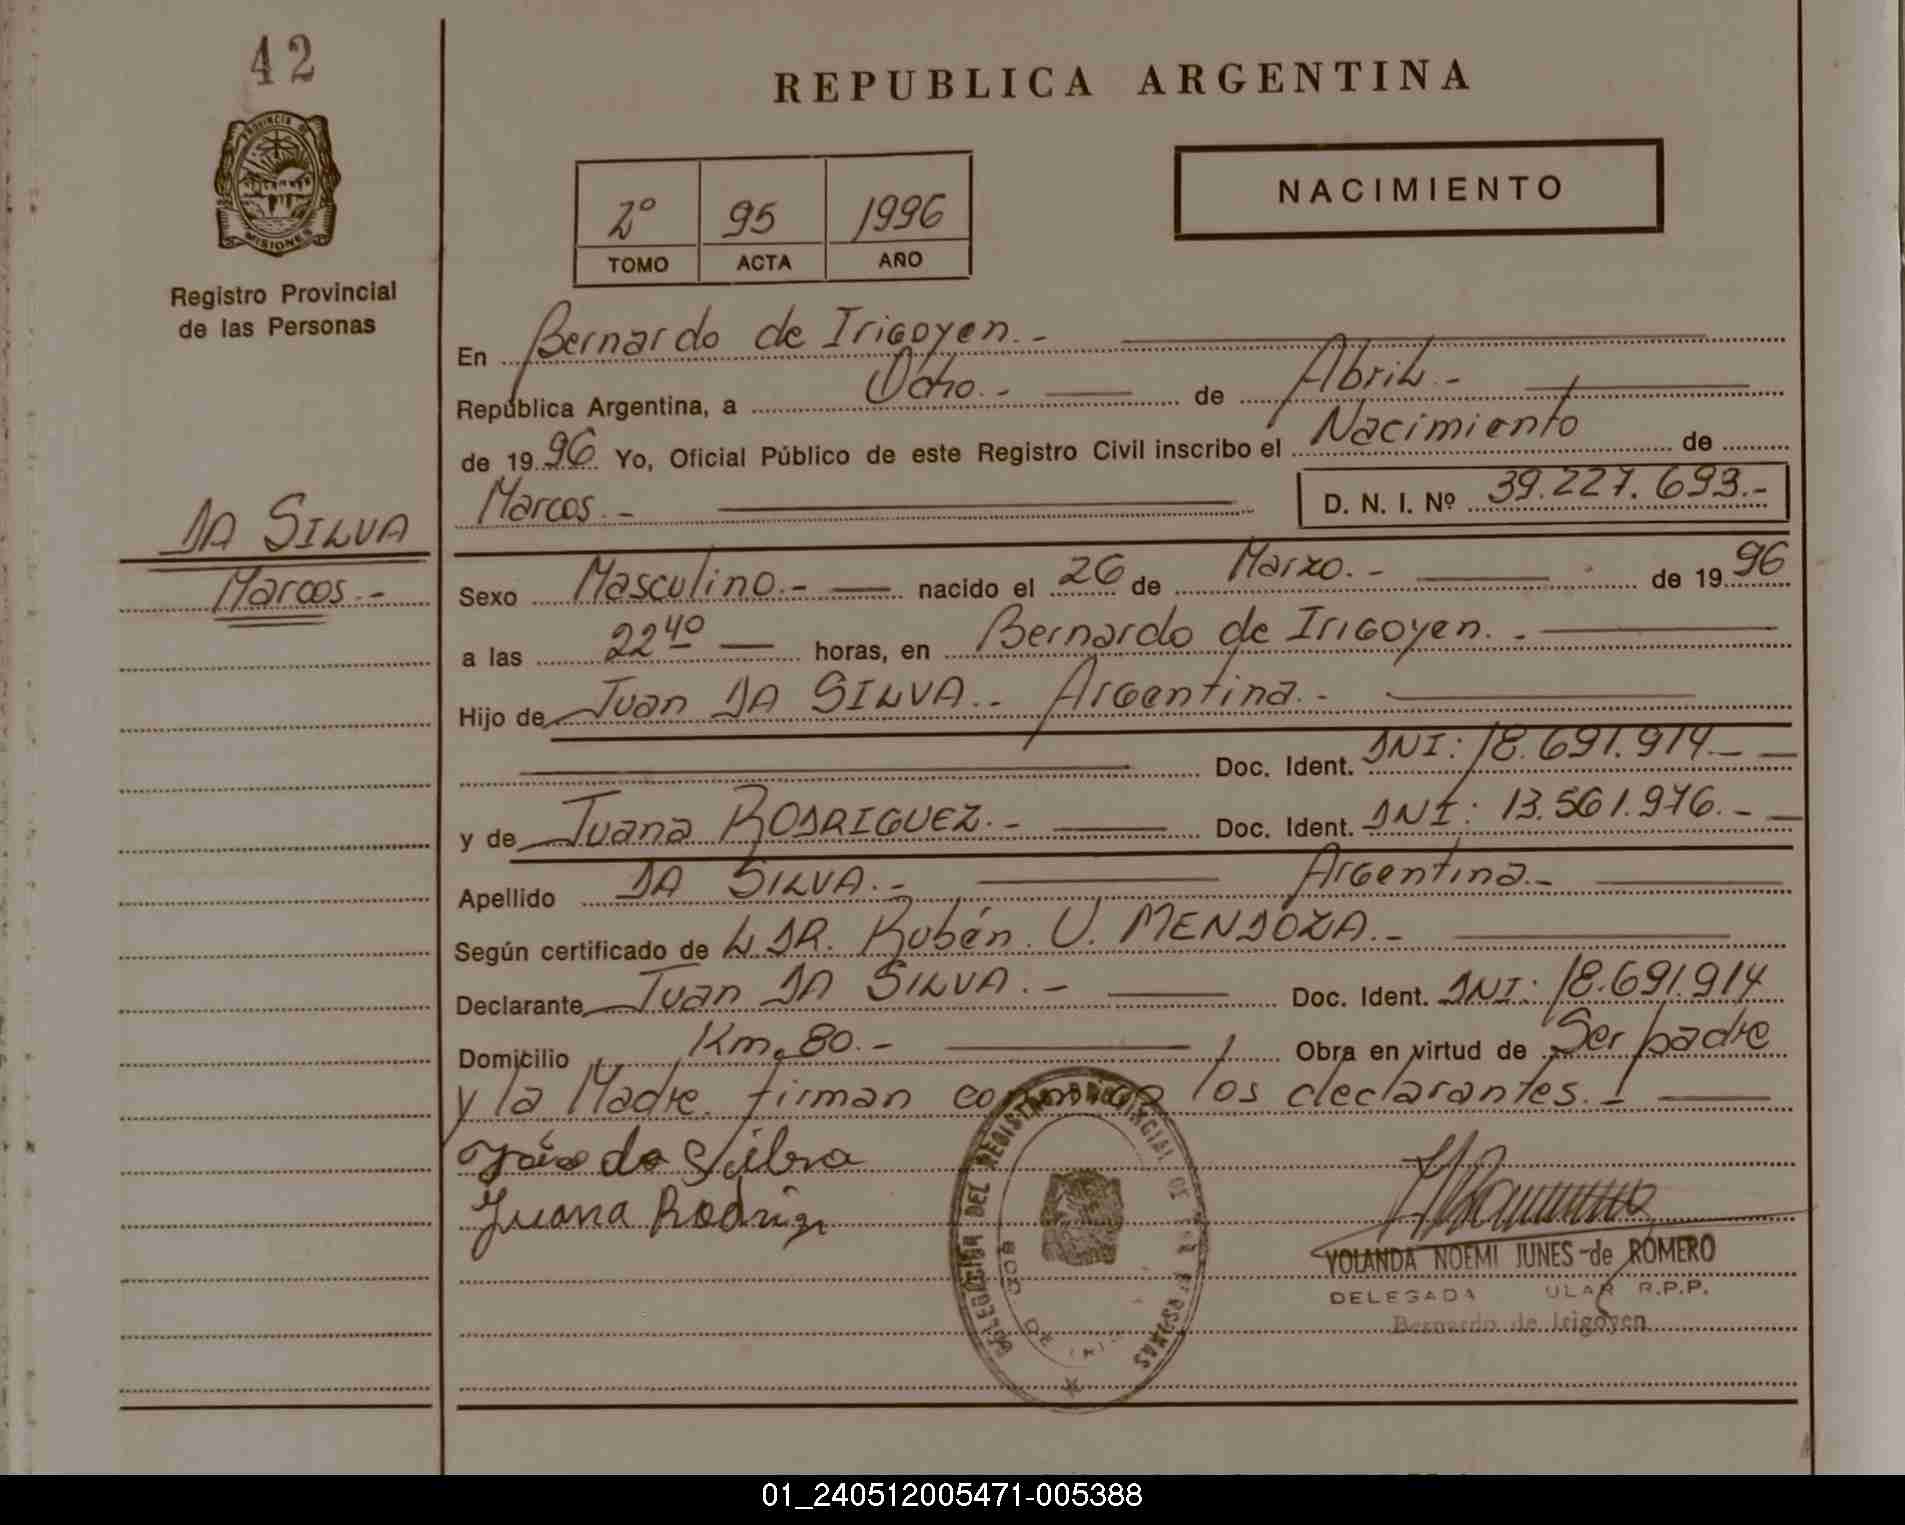 42
REPUBLICA ARGENTINA
PROVINCIA DE
MISIONES
Registro Provincial
de las Personas
2º 95 1996
TOMO ACTA AÑO
NACIMIENTO
En Bernardo de Irigoyen.-
República Argentina, a Ocho.- de Abril.-
de 1996 Yo, Oficial Público de este Registro Civil inscribo el Nacimiento de
Marcos.- D. N. I. Nº 39.227.693.-
DA SILVA
Marcos.-
Sexo Masculino.- nacido el 26 de Marzo.- de 1996
a las 22 40 horas, en Bernardo de Irigoyen.-
Hijo de Juan DA SILVA.- Argentina.-
Doc. Ident. DNI: 18.691.914.-
y de Juana RODRIGUEZ.- Doc. Ident. DNI: 13.561.976.-
Apellido DA SILVA.- Argentina.-
Según certificado de L DR. Rubén U. MENDOZA.-
Declarante Juan DA SILVA.- Doc. Ident. DNI: 18.691.914
Domicilio Km. 80.- Obra en virtud de Ser padre
y la Madre firman conmigo los declarantes.-
João da Silva
Juana Rodrigz
DELEGACION DEL REGISTRO PROVINCIAL DE LAS PERSONAS
BDO DE IRIG
YOLANDA NOEMI JUNES de ROMERO
DELEGADA ULAR R.P.P.
Bernardo de Irigoyen
01_240512005471-005388